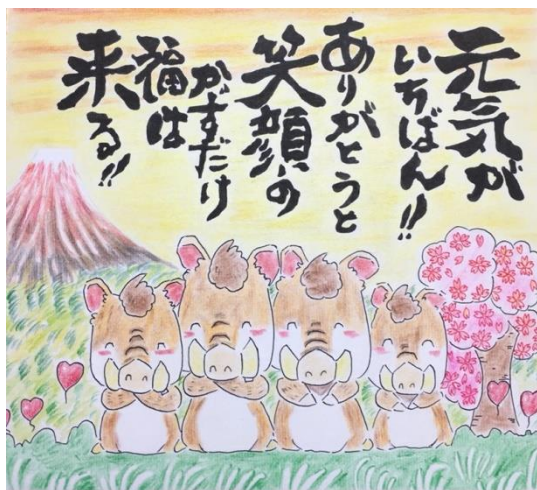 元気が
いちばん!!
ありがとうと
笑顔の
かずだけ
福は
来る!!